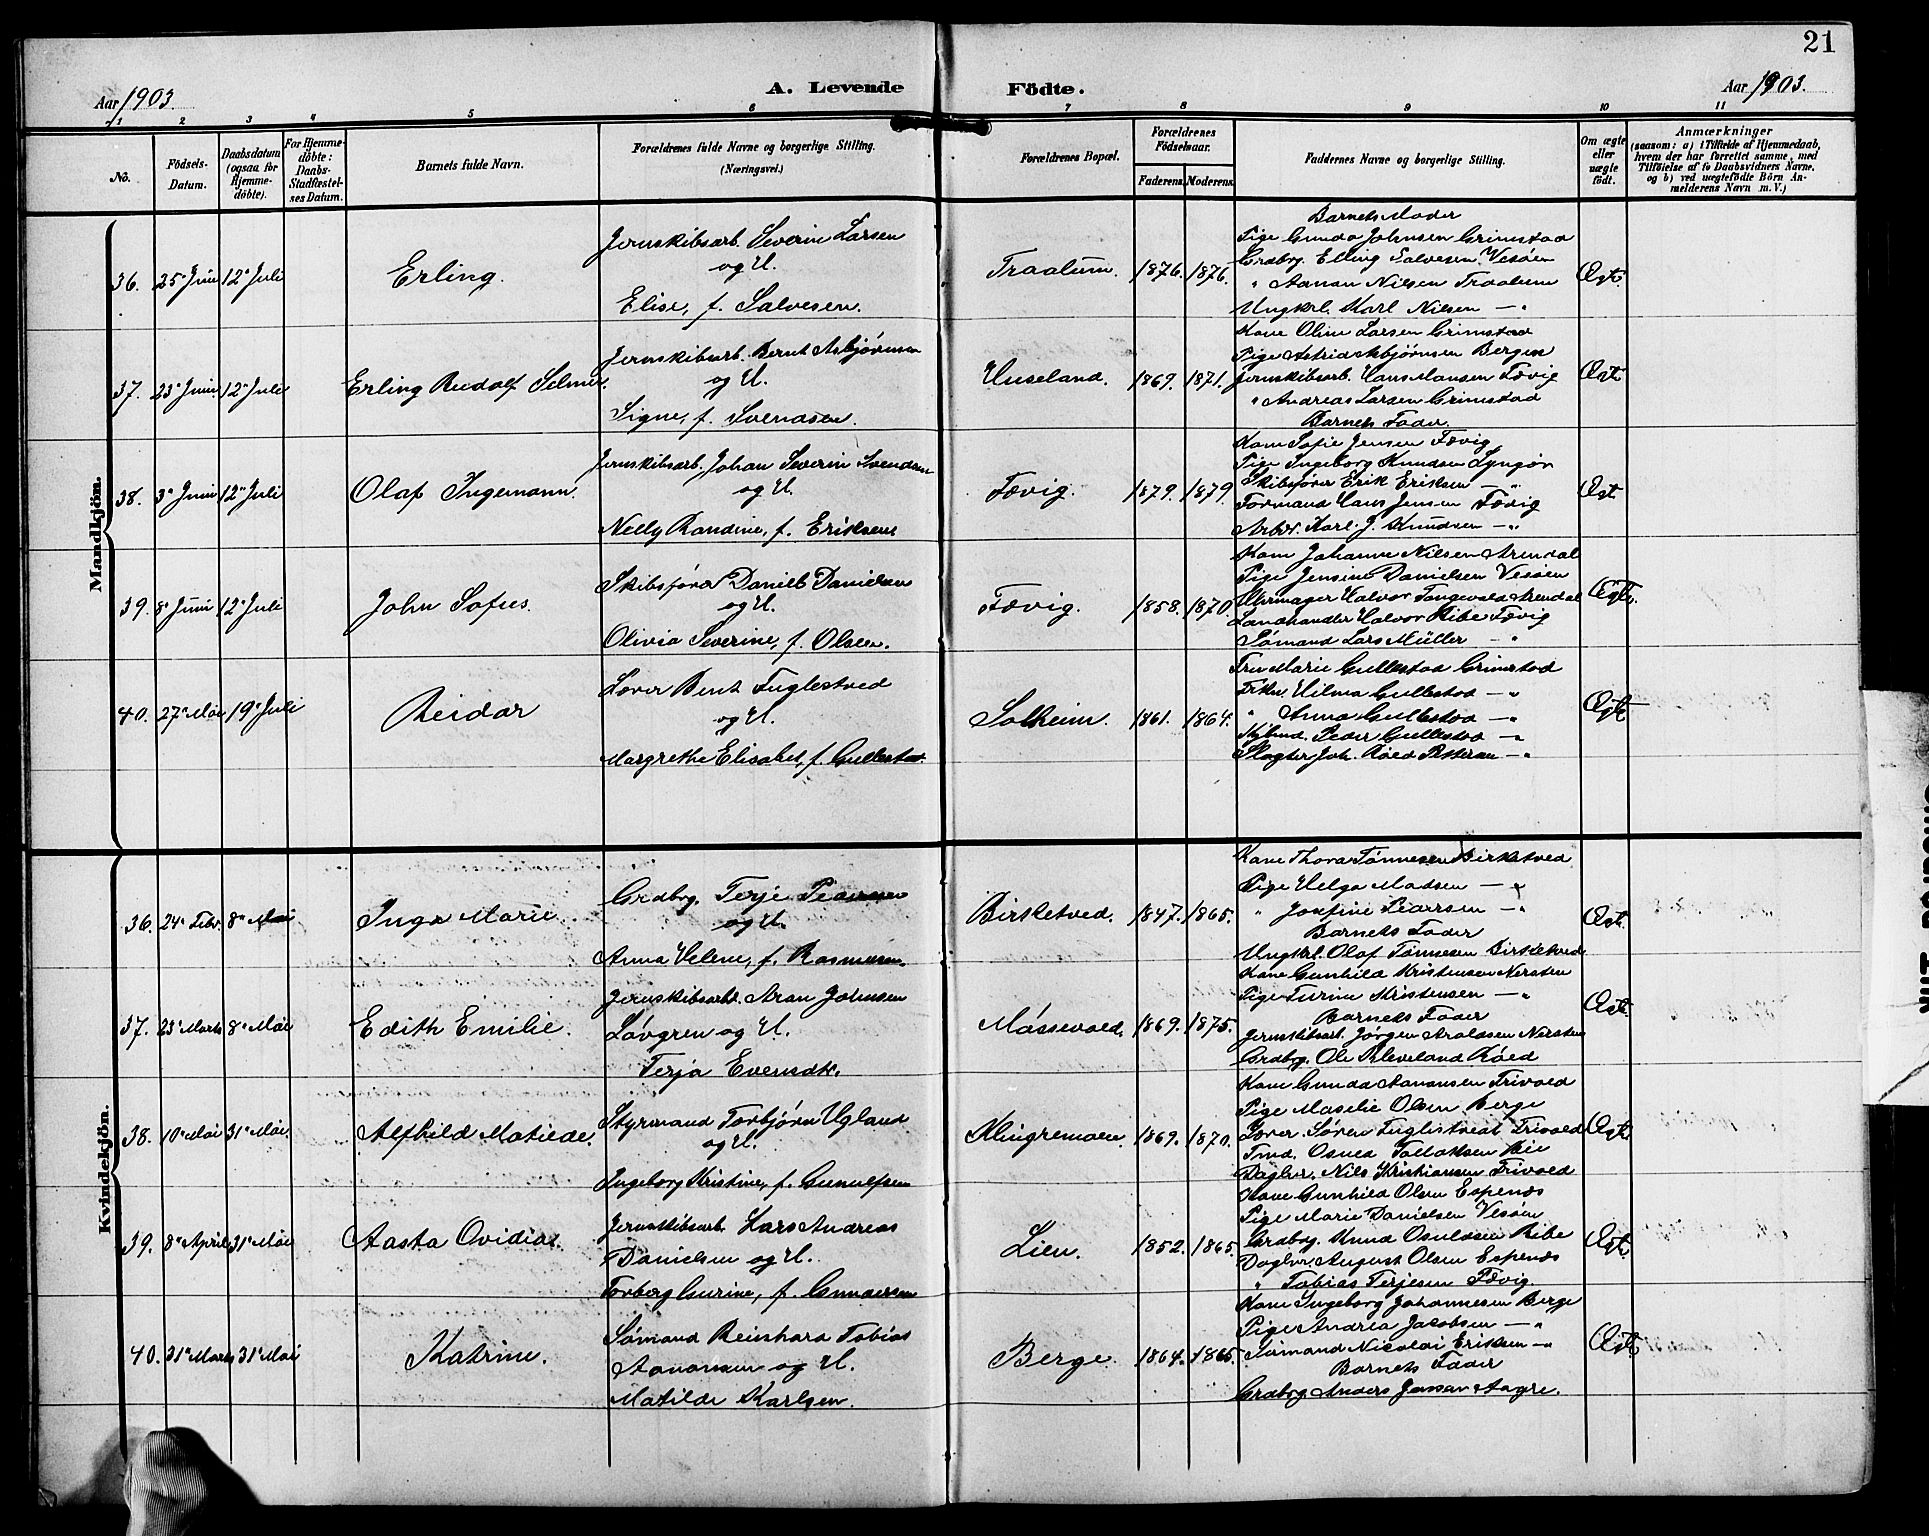 21
Aar 1903.
A. Levende Födte.
Aar 1903.
1 2 3 4 5 6 7 8 9 10 11
No.
Födsels-Datum.
Daabsdatum (ogsaa for Hjemme-döbte).
For Hjemme-döbte: Daabs-Stadfæstel-ses Datum.
Barnets fulde Navn.
Forældrenes fulde Navne og borgerlige Stilling. (Næringsvei.)
Forældrenes Bopæl.
Forældrenes Födselsaar.
Faderens. Moderens.
Faddernes Navne og borgerlige Stilling.
Om ægte eller uægte födt.
Anmærkninger (saasom: a) i Tilfælde af Hjemmedaab, hvem der har forrettet samme, med Tilföielse af to Daabsvidners Navne, og b) ved uægtefödte Börn An-melderens Navn m. V.)
Mandkjön.
36. 25 Juni 12 Juli
Erling.
Jernskibsarb. Severin Larsen
og H.
Elise, f. Salvesen.
Traalum. 1876. 1876.
Barnets Moder
Pige Gunda Johnsen Grimstad
Grdbrg. Elling Salvesen Vesøen
" Aanon Nilsen Traalum
Ungkrl. Karl Nilsen — "
Ægt.
37. 23 Juni 12 Juli
Erling Rudolf Selmer.
Jernskibsarb. Bernt Asbjørnsen
og H.
Signe, f. Svendsen.
Huseland. 1869. 1871.
Kone Oline Larsen Grimstad
Pige Astrid Asbjørnsen Bergen
Jernskibsarb. Hans Hansen Fævig
" Andreas Larsen Grimstad
Barnets Fader.
Ægt
38. 3 Juni 12 Juli
Olaf Ingemann.
Jernskibsarb. Johan Severin Svendsen
og H.
Nelly Randine, f. Eriksen
Fævig. 1879. 1879.
Kone Sofie Jensen Fævig
Pige Ingeborg Knudsen Lyngør
Skibsfører Erik Eriksen — "
Formand Hans Jensen Fævig
Arbdr. Karl J. Knudsen — "
Ægt
39. 8 Juni 12 Juli
John Sofus.
Skibsfører Daniel Danielsen
og H.
Olivia Severine, f. Olsen.
Fævig. 1858. 1870.
Kone Johanne Nilsen Arendal
Pige Jensine Danielsen Vesøen
Uhrmager Halvor Tangevald Arendal
Landhandler Halvor Ribe Fævig
Sømand Lars Müller — "
Ægte.
40. 27 Mai 19 Juli
Reidar
Lærer Bent Fuglestved
og H.
Margrethe Elisabet, f. Gullestad.
Solheim. 1861. 1864.
Fru Marie Gullestad Grimstad
Frkn. Hilma Gullestad — "
" Anna Gullestad — "
Peder Gullestad — "
Slagter Joh. Røed Pettersen — "
Ægte
Kvindekjön.
36. 24 Febr. 8 Mai
Inga Marie.
Grdbrg. Terje
og H.
Anna Helene, f. Rasmussen.
Birketved. 1847. 1865.
Kone Thora Tønnesen Birketved
Pige Helga Madsen — "
" Josefine — "
Barnets Fader
Ungkrl. Olaf Tønnesen Birketved
Ægt.
37. 23 Marts 8 Mai
Edith Emilie.
Jernskibsarb. Aron Johnsen
Løvgren og H.
Terja Evensdtr.
Mossevold. 1869. 1875.
Kone Gunhild Kristensen Nersten
Pige Turine Kristensen — "
Barnets Fader
Jernskibsarb. Jørgen Aroldsen Nersten
Grdbrg. Ole Kleveland Røed
Ægt.
38. 10 Mai 31 Mai.
Alfhild Matilde.
Styrmand Torbjørn Ugland
og H.
Ingeborg Kristine, f. Gunulfsen
Klingremoen. 1869. 1870.
Kone Gunda Aanonsen Frivold
Pige Maselie Olsen Berge
Lærer. Søren Fuglestvedt Frivold
Tmd. Osuld Tallaksen Bie
Dagbr. Nils Kristiansen Frivold
Ægt.
39. 8 April 31 Mai
Aasta Ovidia.
Jernskibsarb. Lars Andreas
Danielsen og H.
Torborg Gurine, f. Gundersen
Lien. 1852. 1865.
Kone Gunhild Olsen Espenes
Pige Marie Danielsen Vesøen
Grdbrg. Knud Osuldsen Ribe
Dagbr. August Olsen Espenes
" Tobias Terjesen Fævig.
Ægt.
40. 31 Marts 31 Mai
Katrine.
Sømand Reinhard Tobias
Aanonsen og H.
Matilde Karlsen.
Berge. 1864. 1865.
Kone Ingeborg Johannesen Berge
Pige Andrea Jacobsen — "
Sømand Nicolai Eriksen — "
Barnets Fader
Grdbrg. Anders Jensen Aagre.
Ægt.